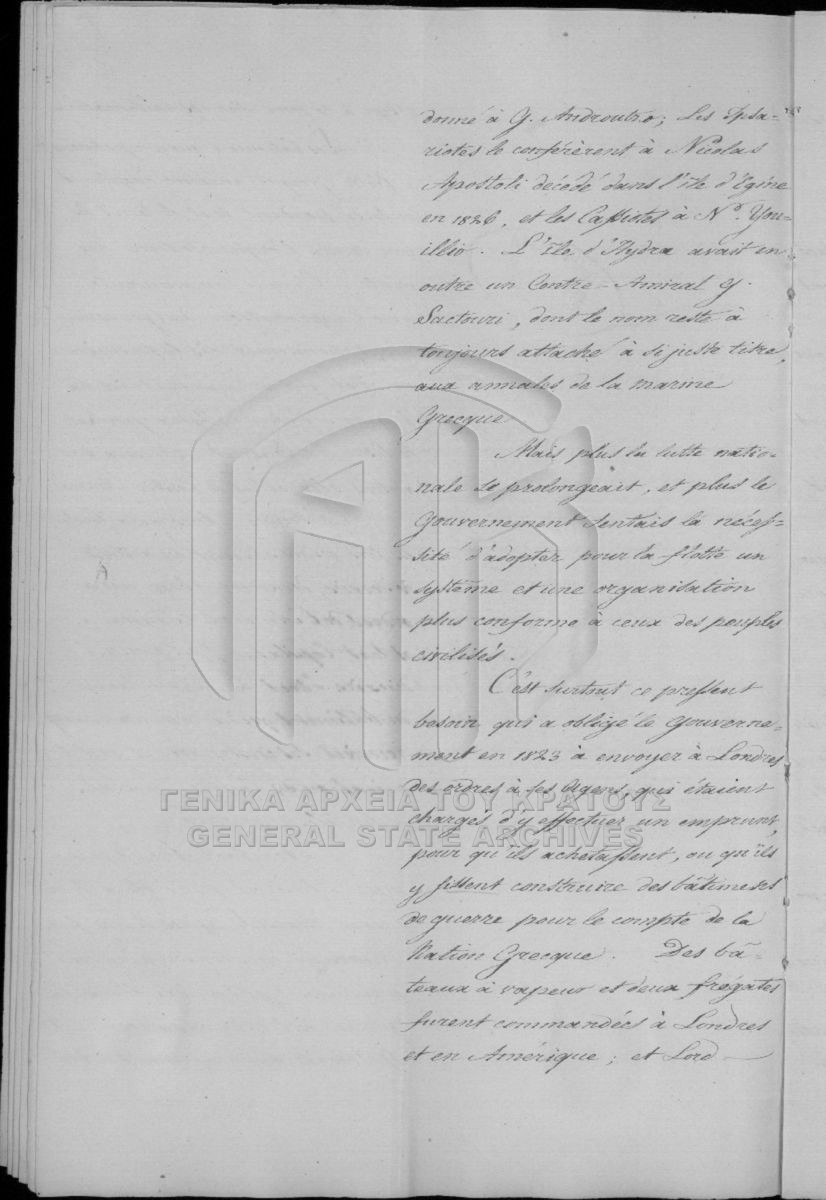 donné à G. Androutzo; Les Ipsa-
riotes le conférèrent à Nicolas
Apostoli décédé dans l'île d'Egine
en 1826, et les Cassiotes à N.
illio. L'île d'Hydra avait en
outre un Contre-Amiral G.
Sactouri, dont le nom reste à
toujours attaché à si juste titre,
aux annales de la marine
Grecque.
Mais plus la lutte natio-
nale se prolongeait, et plus le
Gouvernement sentais la néces-
sité d'adopter pour la flotte un
système et une organisation
plus conforme à ceux des peuples
civilisés.
C'est surtout ce pressent
besoin qui a obligé le Gouverne-
ment en 1823 à envoyer à Londres
des ordres à ses Agens, qui étaient
chargés d'y effectuer un emprunt,
pour qu'ils achetassent, ou qu'ils
y fissent construire des bâtimens
de guerre pour le compte de la
Nation Grecque. Des bâ-
teaux à vapeur et deux frégates
furent commandées à Londres
et en Amérique; et Lord —
ΓΕΝΙΚΑ ΑΡΧΕΙΑ ΤΟΥ ΚΡΑΤΟΥΣ
GENERAL STATE ARCHIVES